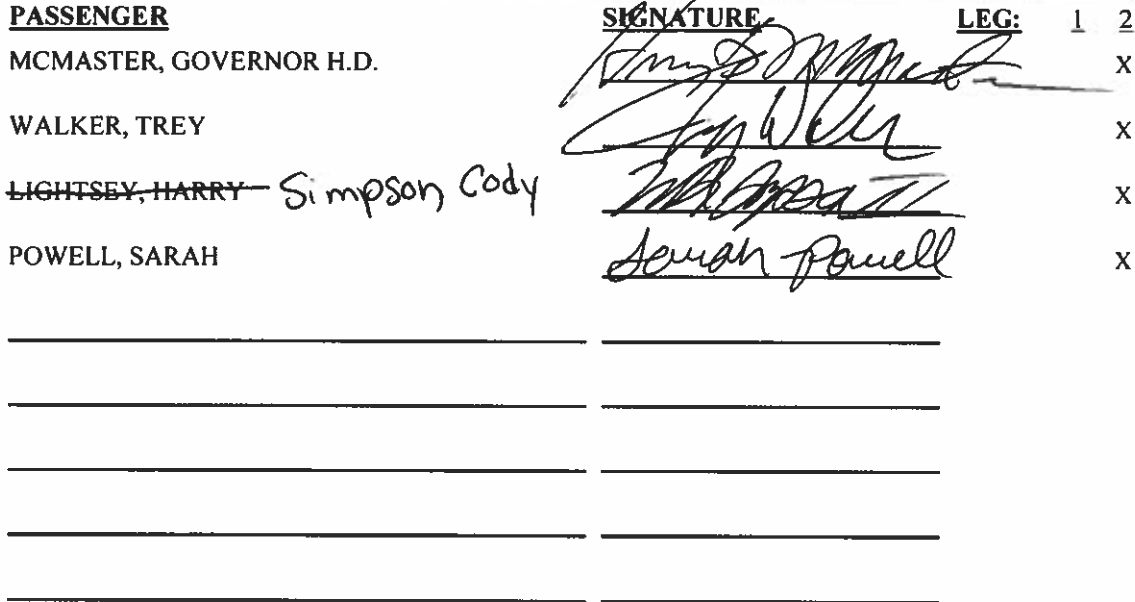 PASSENGER SIGNATURE LEG: 1 2
MCMASTER, GOVERNOR H.D. X
WALKER, TREY X
LIGHTSEY, HARRY Simpson Cody X
POWELL, SARAH Sarah Powell X